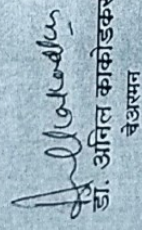 डा. अनिल काकोडकर
चेअरमन